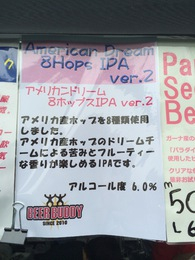 American Dream
8Hops IPA
ver.2
アメリカンドリーム
8ホップスIPA ver.2
アメリカ産ホップを8種類使用
しました。
アメリカ産ホップのドリームチ
ームによる苦みとフルーティー
な香りが楽しめるIPAです。
アルコール度 6.0%
BEER BUDDY
SINCE 2010
Pa
See
Be
ガーナ産の
使用した
クリアな